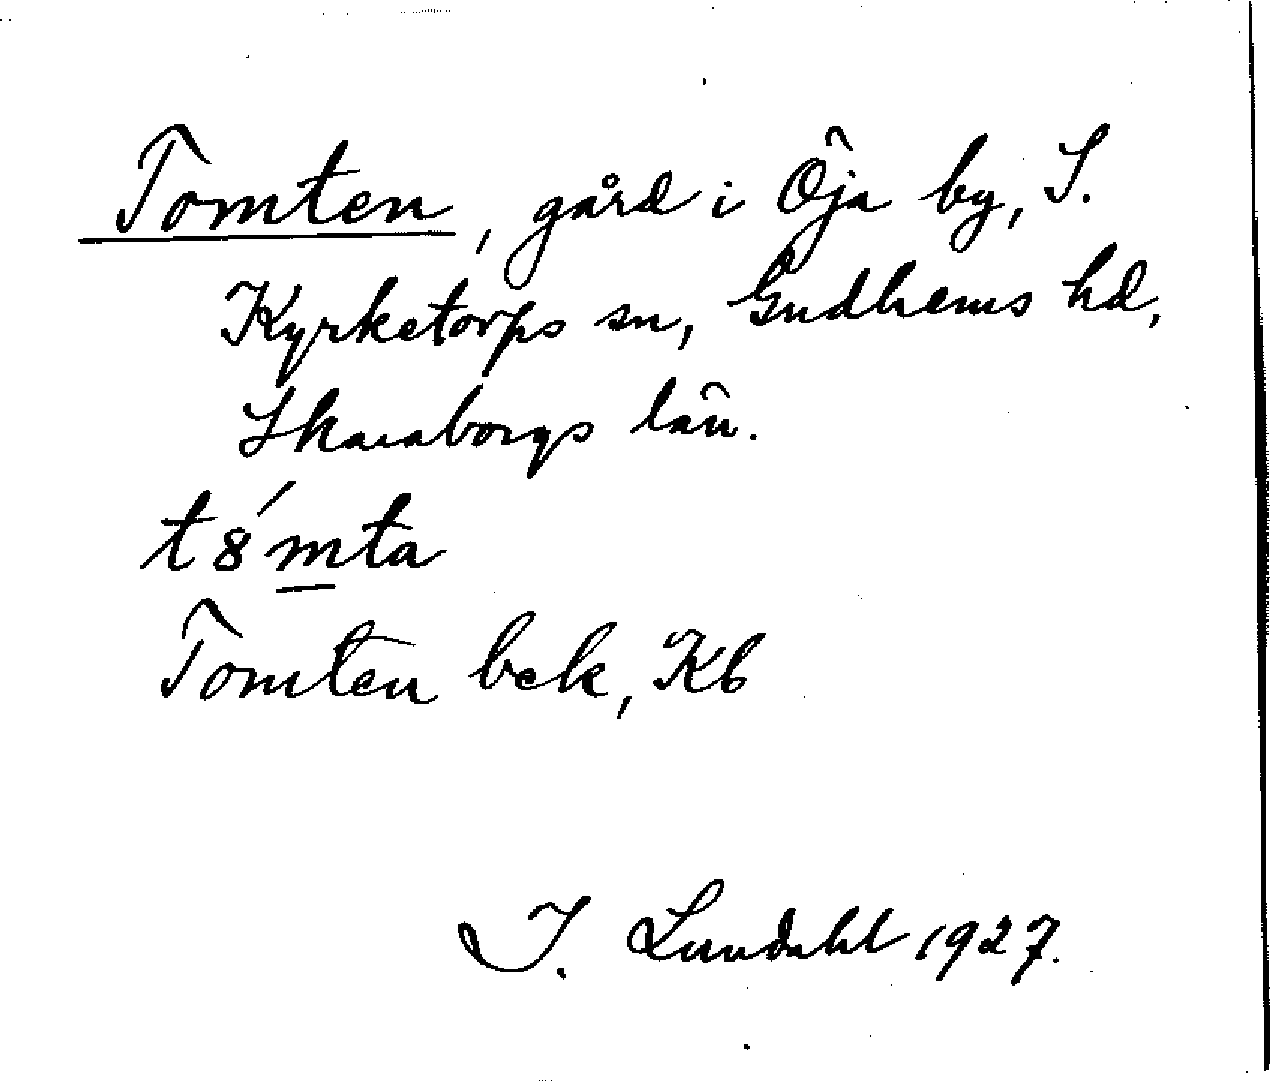 Tomten, gård i Öja by, S.
Kyrketorps sn, Gudhems hd,
Skaraborgs län.
t8́mta
Tomten bek, Kb
I. Lundahl 1927.